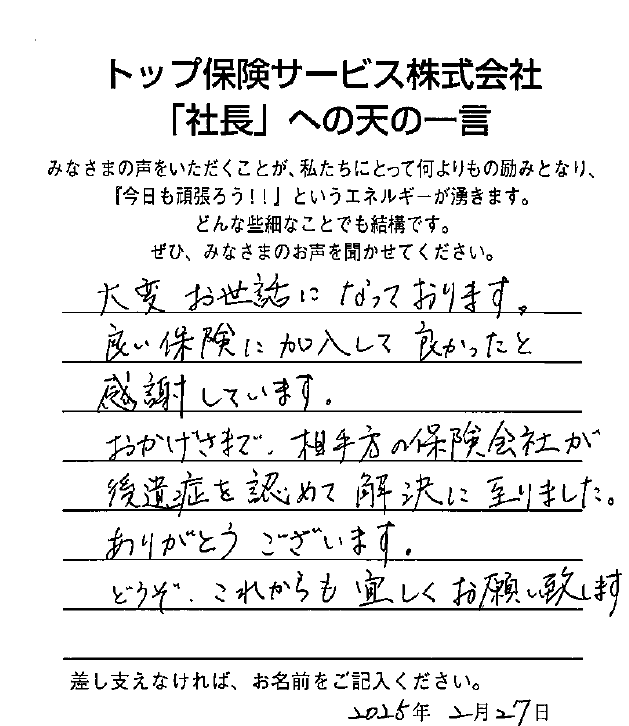 トップ保険サービス株式会社
「社長」への天の一言
みなさまの声をいただくことが、私たちにとって何よりもの励みとなり、
『今日も頑張ろう！！』というエネルギーが湧きます。
どんな些細なことでも結構です。
ぜひ、みなさまのお声を聞かせてください。
大変お世話になっております。
良い保険に加入して良かったと
感謝しています。
おかげさまで、相手方の保険会社が
後遺症を認めて解決に至りました。
ありがとうございます。
どうぞ、これからも宜しくお願い致します
差し支えなければ、お名前をご記入ください。
2025年 2月27日